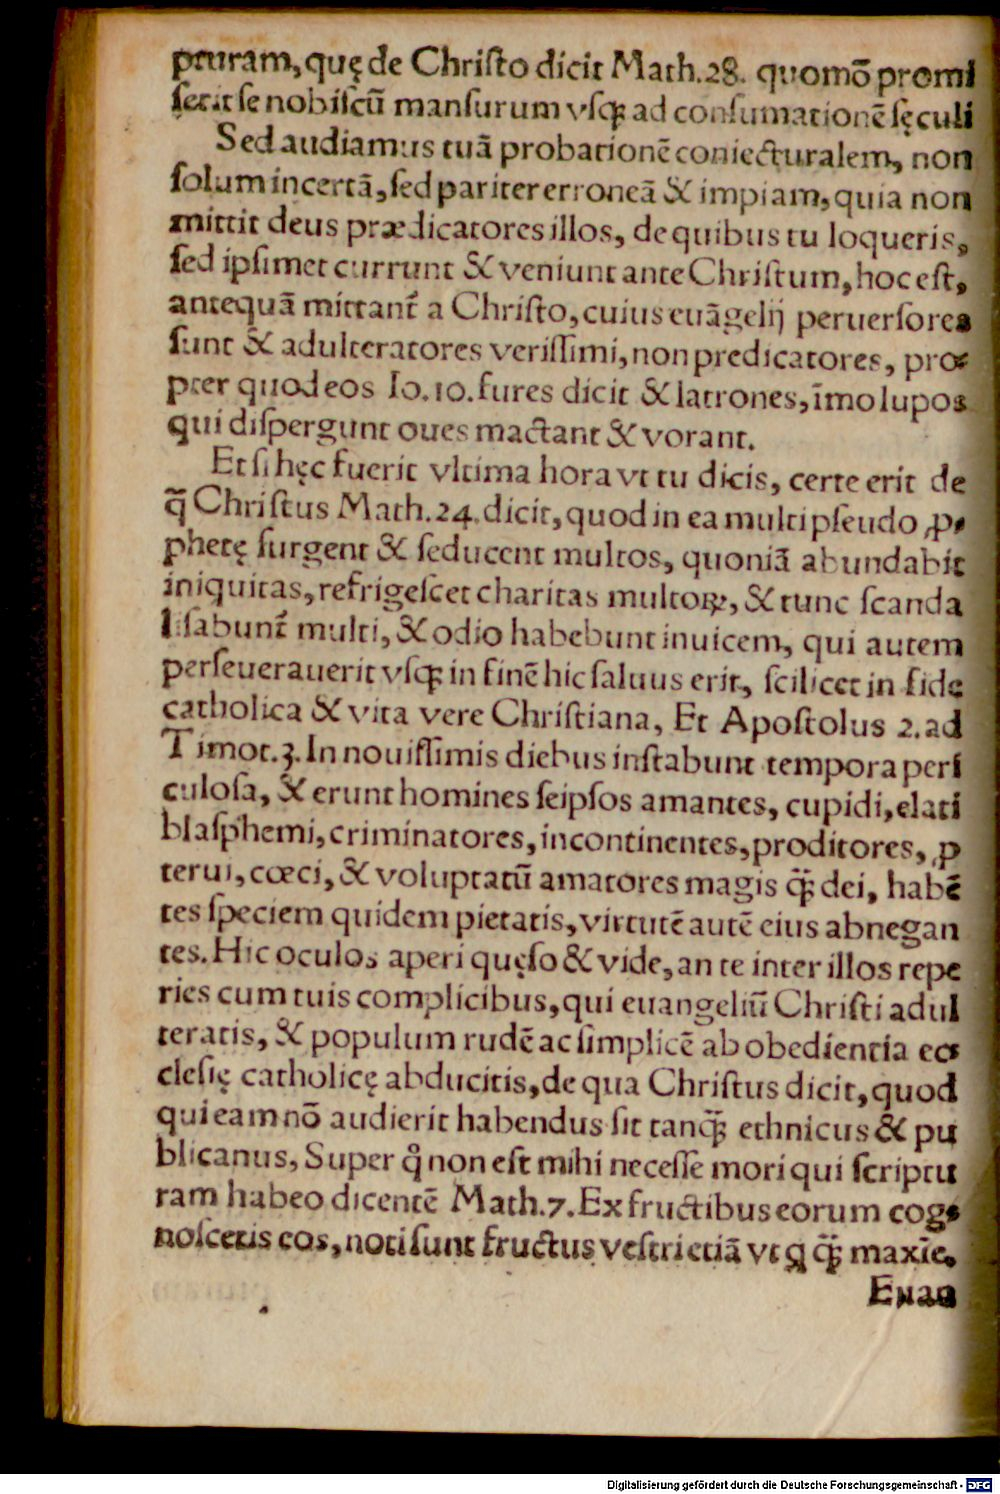 pturam, quę de Chriſto dicit Math.28. quomō promi
ſerit ſe nobiſcū manſurum vſqꝫ ad conſumationē ſęculi
Sed audiamus tuā probationē coniecturalem, non
ſolum incertā, ſed pariter erroneā & impiam, quia non
mittit deus prædicatores illos, de quibus tu loqueris,
ſed ipſimet currunt & veniunt ante Chriſtum, hoc eſt,
antequā mittant᷑ a Chriſto, cuius euāgelij peruerſores
ſunt & adulteratores veriſſimi, non predicatores, pro⸗
pter quod eos Io.10. fures dicit & latrones, īmo lupos
qui diſpergunt oues mactant & vorant.
Et ſi hęc fuerit vltima hora vt tu dicis, certe erit de
q̄ Chriſtus Math.24. dicit, quod in ea multi pſeudo ꝓ⸗
phetę ſurgent & ſeducent multos, quoniā abundabit
iniquitas, refrigeſcet charitas multoꝝ, & tunc ſcanda
liſabunt᷑ multi, & odio habebunt inuicem, qui autem
perſeuerauerit vſqꝫ in finē hic ſaluus erit, ſcilicet in fide
catholica & vita vere Chriſtiana, Et Apoſtolus 2. ad
Timot.3. In nouiſſimis diebus inſtabunt tempora peri
culoſa, & erunt homines ſeipſos amantes, cupidi, elati
blaſphemi, criminatores, incontinentes, proditores, ꝓ
terui, cœci, & voluptatū amatores magis q̄ꝫ dei, habē
tes ſpeciem quidem pietatis, virtutē autē eius abnegan
tes. Hic oculos aperi quęſo & vide, an te inter illos repe
ries cum tuis complicibus, qui euangeliū Chriſti adul
teratis, & populum rudē ac ſimplicē ab obedientia ec⸗
cleſię catholicę abducitis, de qua Chriſtus dicit, quod
qui eam nō audierit habendus ſit tanq̄ꝫ ethnicus & pu
blicanus, Super qͦ non eſt mihi neceſſe mori qui ſcriptu
ram habeo dicentē Math.7. Ex fructibus eorum cog⸗
noſcetis eos, noti ſunt fructus veſtri etiā vt ꝗ q̄ꝫ maxīe.
Euan
Digitalisierung gefördert durch die Deutsche Forschungsgemeinschaft - DFG